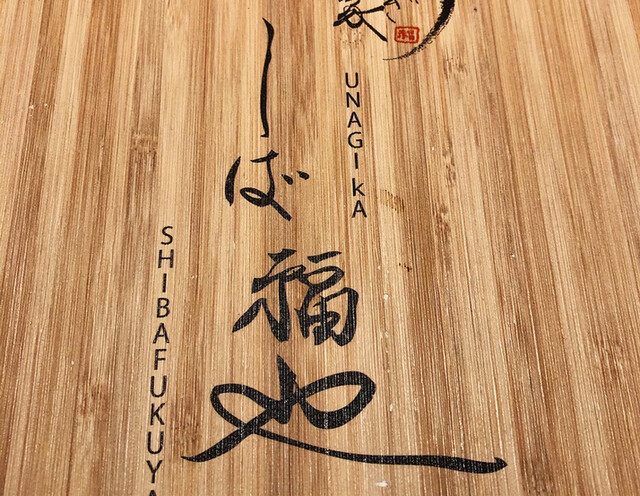 UNAGI KA
しば福也
SHIBAFUKUYA